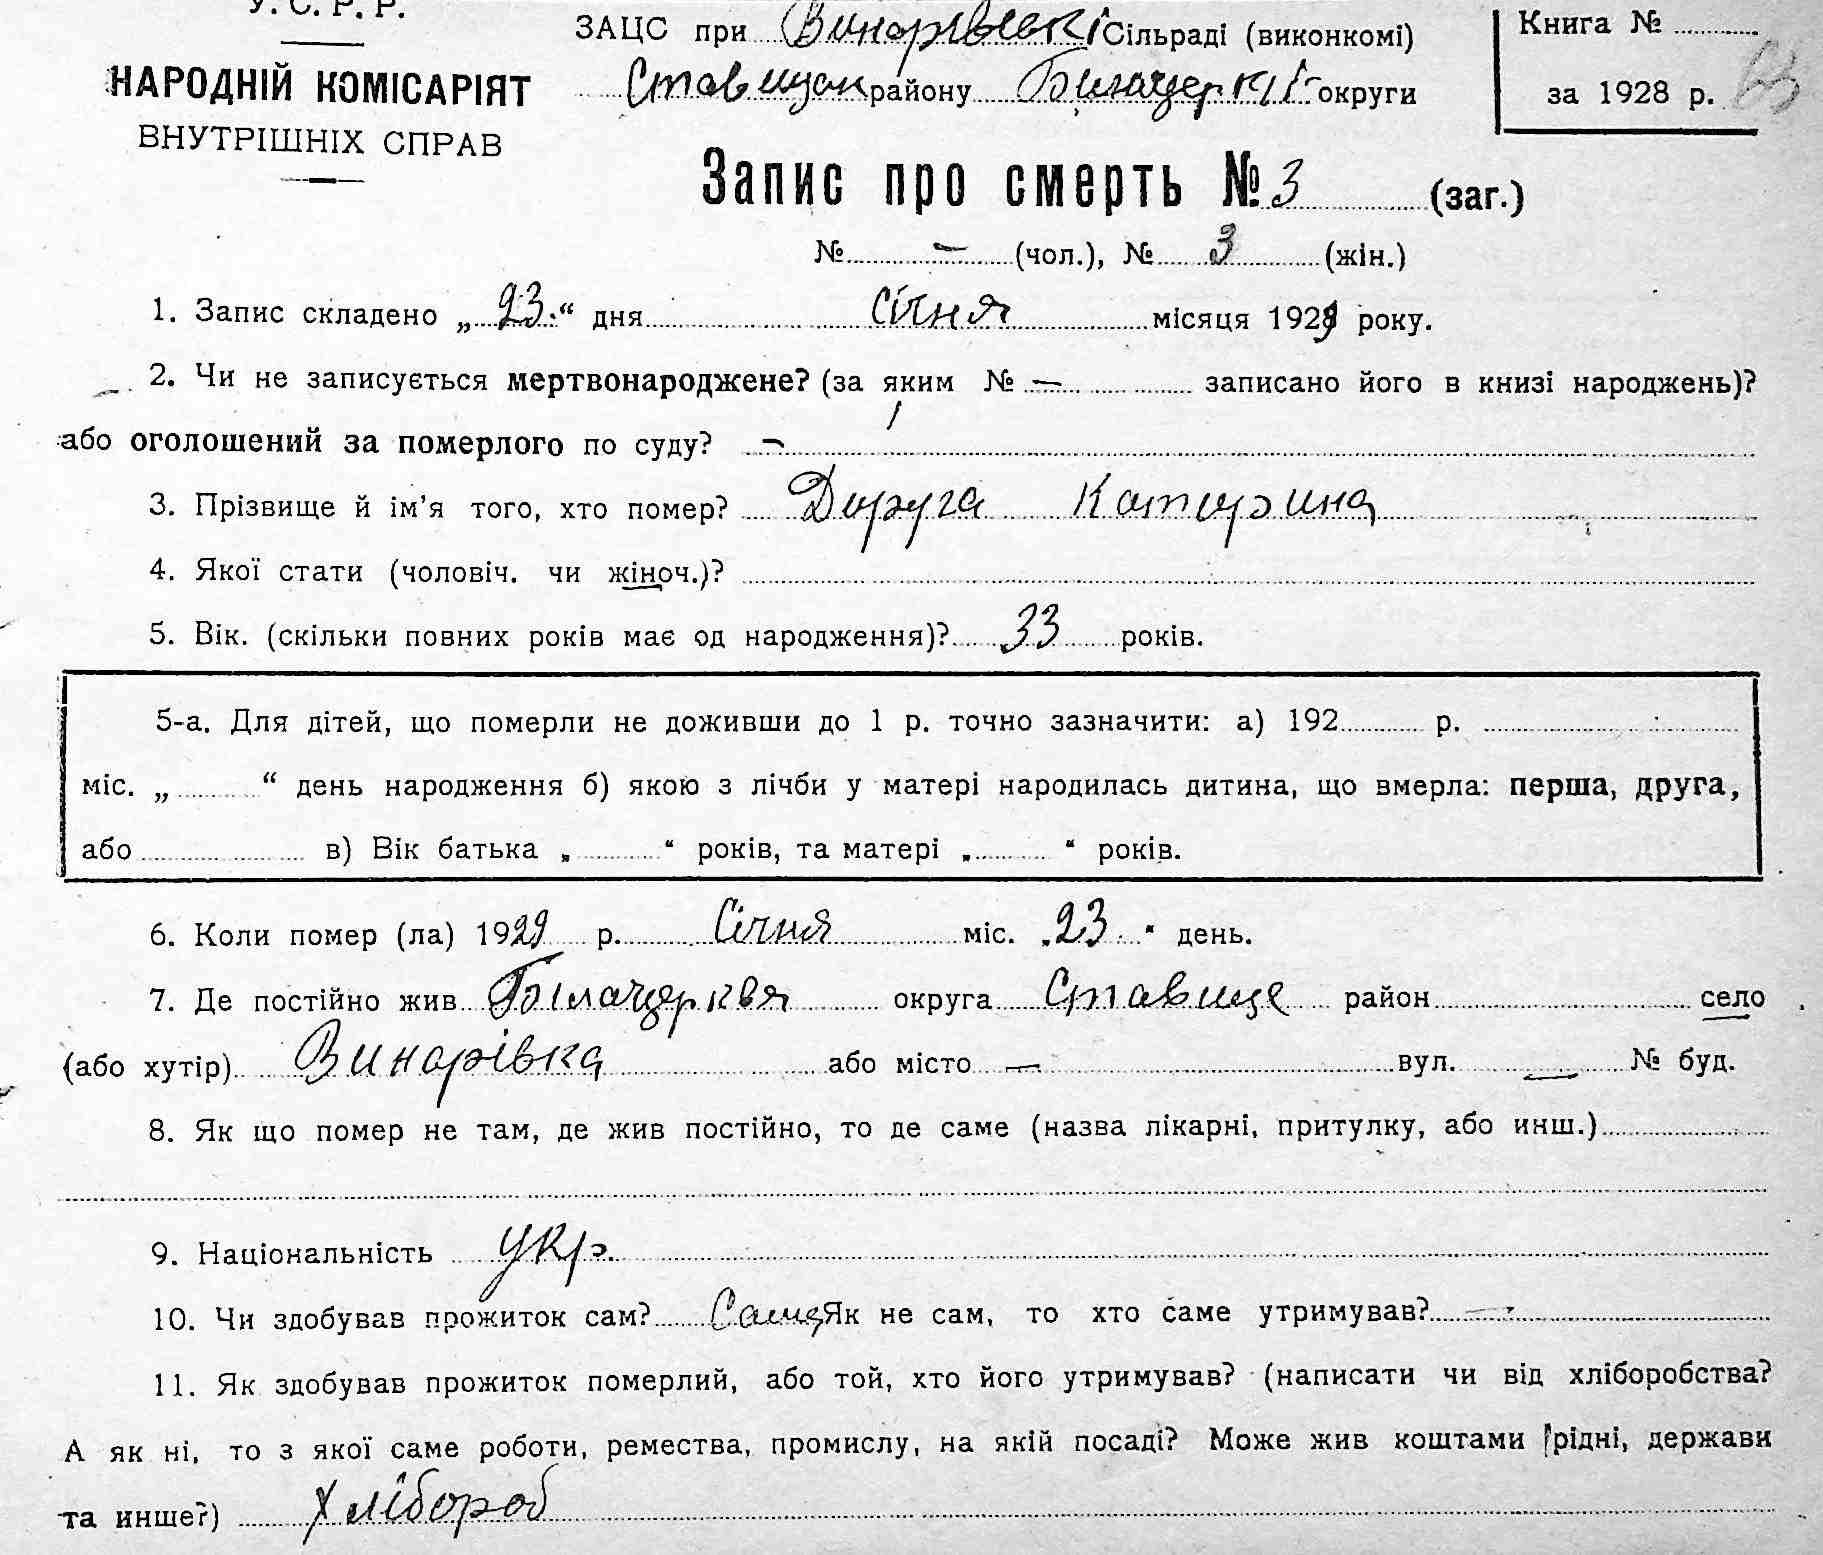 У. С. Р. Р.
НАРОДНІЙ КОМІСАРІЯТ
ВНУТРІШНІХ СПРАВ
ЗАЦС при Винарівські Сільраді (виконкомі)
району округи
Книга №
за 1928 р. 63
Запис про смерть № 3 (заг.)
№ — (чол.), № 3 (жін.)
1. Запис складено „23“ дня січня місяця 1929 року.
2. Чи не записується мертвонароджене? (за яким № — записано його в книзі народжень)?
або оголошений за померлого по суду? —
3. Прізвище й ім’я того, хто помер? Дируга Катирина
4. Якої стати (чоловіч. чи жіноч.)?
5. Вік. (скільки повних років має од народження)? 33 років.
5-а. Для дітей, що померли не доживши до 1 р. точно зазначити: а) 192 р.
міс. „ “ день народження б) якою з лічби у матері народилась дитина, що вмерла: перша, друга,
або в) Вік батька „ “ років, та матері „ “ років.
6. Коли помер (ла) 1929 р. Січня міс. „23“ день.
7. Де постійно жив Білацерквя округа Ставище район село
(або хутір) Винарівка або місто — вул. — № буд.
8. Як що помер не там, де жив постійно, то де саме (назва лікарні, притулку, або инш.)
9. Національність укр.
10. Чи здобував прожиток сам? Сама Як не сам, то хто саме утримував? —
11. Як здобував прожиток померлий, або той, хто його утримував? (написати чи від хліборобства?
А як ні, то з якої саме роботи, ремества, промислу, на якій посаді? Може жив коштами рідні, держави
та инше?) Хлібороб